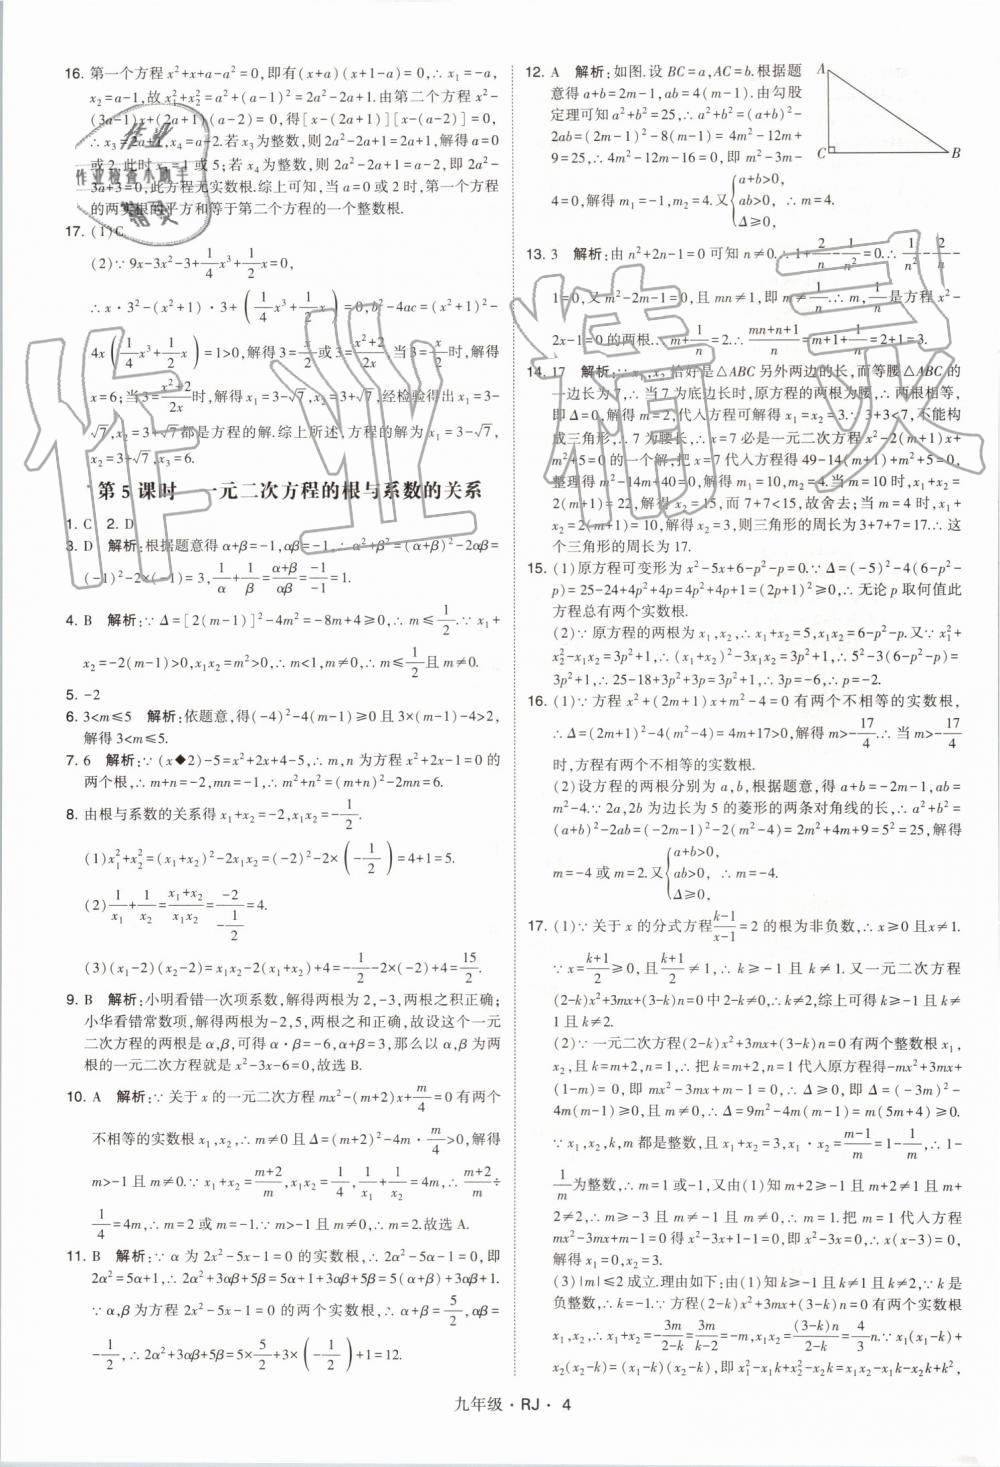 16. 第一个方程 x²+x+a-a²=0,即有(x+a)(x+1-a)=0,∴x₁=-a,
x₂=a-1,故 x₁²+x₂²=a²+(a-1)²=2a²-2a+1.由第二个方程 x²-
(3a-1)x+(2a+1)(a-2)=0,得[x-(2a+1)][x-(a-2)]=0,
∴x₃=2a+1,x₄=a-2.若x₃为整数根,则2a²-2a+1=2a+1,解得a=0
或2,此时 x₃=1或5;若x₄为整数根,则2a²-2a+1=a-2,即2a²-
3a+3=0,此方程无实数根.综上可知,当a=0或2时,第一个方程
的两实根的平方和等于第二个方程的一个整数根.
17. (1)C
(2)∵9x-3x²-3+1/4x³+1/2x=0,
∴x·3²-(x²+1)·3+(1/4x³+1/2x)=0,b²-4ac=(x²+1)²-
4x(1/4x³+1/2x)=1>0,解得3=x/2或3=(x²+2)/2x.当3=x/2时,解得
x=6;当3=(x²+2)/2x时,解得x₁=3-√7,x₂=3+√7,经检验得出x₁=3-
√7,x₂=3+√7都是方程的解.综上所述,方程的解为x₁=3-√7,
x₂=3+√7,x₃=6.
第5课时 一元二次方程的根与系数的关系
1. C 2. D
3. D 解析:根据题意得α+β=-1,αβ=-1,∴α²+β²=(α+β)²-2αβ=
(-1)²-2×(-1)=3,1/α+1/β=(α+β)/αβ=-1/-1=1.
4. B 解析:∵Δ=[2(m-1)]²-4m²=-8m+4≥0,∴m≤1/2.∵x₁+
x₂=-2(m-1)>0,x₁x₂=m²>0,∴m<1,m≠0,∴m≤1/2且m≠0.
5. -2
6. 3<m≤5 解析:依题意,得(-4)²-4(m-1)≥0且3×(m-1)-4>2,
解得3<m≤5.
7. 6 解析:∵(x◆2)-5=x²+2x+4-5,∴m,n为方程x²+2x-1=0的
两个根,∴m+n=-2,mn=-1,∴m²+n²=(m+n)²-2mn=6.
8. 由根与系数的关系得x₁+x₂=-2,x₁x₂=-1/2.
(1)x₁²+x₂²=(x₁+x₂)²-2x₁x₂=(-2)²-2×(-1/2)=4+1=5.
(2)1/x₁+1/x₂=(x₁+x₂)/x₁x₂=-2/(-1/2)=4.
(3)(x₁-2)(x₂-2)=x₁x₂-2(x₁+x₂)+4=-1/2-2×(-2)+4=15/2.
9. B 解析:小明看错一次项系数,解得两根为2,-3,两根之积正确;
小华看错常数项,解得两根为-2,5,两根之和正确,故设这个一元
二次方程的两根是α,β,可得α·β=-6,α+β=3,那么以α,β为两
根的一元二次方程就是x²-3x-6=0,故选B.
10. A 解析:∵关于x的一元二次方程mx²-(m+2)x+m/4=0有两个
不相等的实数根x₁,x₂,∴m≠0且Δ=(m+2)²-4m·m/4>0,解得
m>-1且m≠0.∵x₁+x₂=(m+2)/m,x₁x₂=1/4,1/x₁+1/x₂=4m,∴(m+2)/m÷
1/4=4m,∴m=2或m=-1.∵m>-1且m≠0,∴m=2.故选A.
11. B 解析:∵α为2x²-5x-1=0的实数根,∴2α²-5α-1=0,即
2α²=5α+1,∴2α²+3αβ+5β=5α+1+3αβ+5β=5(α+β)+3αβ+1.
∵α,β为方程2x²-5x-1=0的两个实数根,∴α+β=5/2,αβ=
-1/2,∴2α²+3αβ+5β=5×5/2+3×(-1/2)+1=12.
12. A 解析:如图.设BC=a,AC=b.根据题
意得a+b=2m-1,ab=4(m-1).由勾股
定理可知a²+b²=25,∴a²+b²=(a+b)²-
2ab=(2m-1)²-8(m-1)=4m²-12m+
9=25,∴4m²-12m-16=0,即m²-3m-
4=0,解得m₁=-1,m₂=4.又{a+b>0, ab>0, Δ≥0, ∴m=4.
A
C
B
13. 3 解析:由n²+2n-1=0可知n≠0.∴1+2/n-1/n²=0.∴1/n²-2/n-
1=0,又m²-2m-1=0,且mn≠1,即m≠1/n.∴m,1/n是方程x²-
2x-1=0的两根.∴m+1/n=2.∴(mn+n+1)/n=m+1+1/n=2+1=3.
14. 17 解析:∵x₁,x₂恰好是△ABC另外两边的长,而等腰△ABC的
一边长为7,∴当7为底边长时,原方程的根为腰,∴两根相等,
即Δ=0,解得m=2,代入方程可解得x₁=x₂=3.∵3+3<7,不能构
成三角形,∴7为腰长,∴x=7必是一元二次方程x²-2(m+1)x+
m²+5=0的一个解,把x=7代入方程得49-14(m+1)+m²+5=0,
整理得m²-14m+40=0,解得m₁=10,m₂=4.当m=10时,x₁+x₂=
2(m+1)=22,解得x₂=15,而7+7<15,故舍去;当m=4时,x₁+
x₂=2(m+1)=10,解得x₂=3,则三角形的周长为3+7+7=17.∴这
个三角形的周长为17.
15. (1)原方程可变形为x²-5x+6-p²-p=0.∵Δ=(-5)²-4(6-p²-
p)=25-24+4p²+4p=4p²+4p+1=(2p+1)²≥0,∴无论p取何值此
方程总有两个实数根.
(2)∵原方程的两根为x₁,x₂,∴x₁+x₂=5,x₁x₂=6-p²-p.又∵x₁²+
x₂²-x₁x₂=3p²+1,∴(x₁+x₂)²-3x₁x₂=3p²+1,∴5²-3(6-p²-p)=
3p²+1,∴25-18+3p²+3p=3p²+1,∴3p=-6,∴p=-2.
16. (1)∵方程x²+(2m+1)x+m²-4=0有两个不相等的实数根,
∴Δ=(2m+1)²-4(m²-4)=4m+17>0,解得m>-17/4.∴当m>-17/4
时,方程有两个不相等的实数根.
(2)设方程的两根分别为a,b,根据题意,得a+b=-2m-1,ab=
m²-4.∵2a,2b为边长为5的菱形的两条对角线的长,∴a²+b²=
(a+b)²-2ab=(-2m-1)²-2(m²-4)=2m²+4m+9=5²=25,解得
m=-4或m=2.又{a+b>0, ab>0, Δ≥0, ∴m=-4.
17. (1)∵关于x的分式方程(k-1)/(x-1)=2的根为非负数,∴x≥0且x≠1.
∵x=(k+1)/2≥0,且(k+1)/2≠1,∴k≥-1且k≠1.又一元二次方程
(2-k)x²+3mx+(3-k)n=0中2-k≠0,∴k≠2,综上可得k≥-1且k≠1且k≠2.
(2)∵一元二次方程(2-k)x²+3mx+(3-k)n=0有两个整数根x₁,
x₂,且k=m+2,n=1,∴把k=m+2,n=1代入原方程得-mx²+3mx+
(1-m)=0,即mx²-3mx+m-1=0,∴Δ≥0,即Δ=(-3m)²-
4m(m-1)≥0,且m≠0,∴Δ=9m²-4m(m-1)=m(5m+4)≥0.
∵x₁,x₂,k,m都是整数,且x₁+x₂=3,x₁·x₂=(m-1)/m=1-1/m,∴1-
1/m为整数,∴m=1或-1,又由(1)知m+2≥-1且m+2≠1且m+
2≠2,∴m≥-3且m≠-1且m≠0,∴m=1.把m=1代入方程
mx²-3mx+m-1=0得x²-3x+1-1=0,即x²-3x=0,x(x-3)=0,
解得x₁=0,x₂=3.
(3)|m|≤2成立.理由如下:由(1)知k≥-1且k≠1且k≠2,∵k是
负整数,∴k=-1.∵方程(2-k)x²+3mx+(3-k)n=0有两个实数根
x₁,x₂,∴x₁+x₂=-3m/(2-k)=-3m/3=-m,x₁x₂=(3-k)n/(2-k)=4/3n.∵x₁(x₁-k)+
x₂(x₂-k)=(x₁-k)(x₂-k),即x₁²-x₁k+x₂²-x₂k=x₁x₂-x₁k-x₂k+k²,
九年级·RJ·4
作业
作业检查小助手
精灵
作业精灵